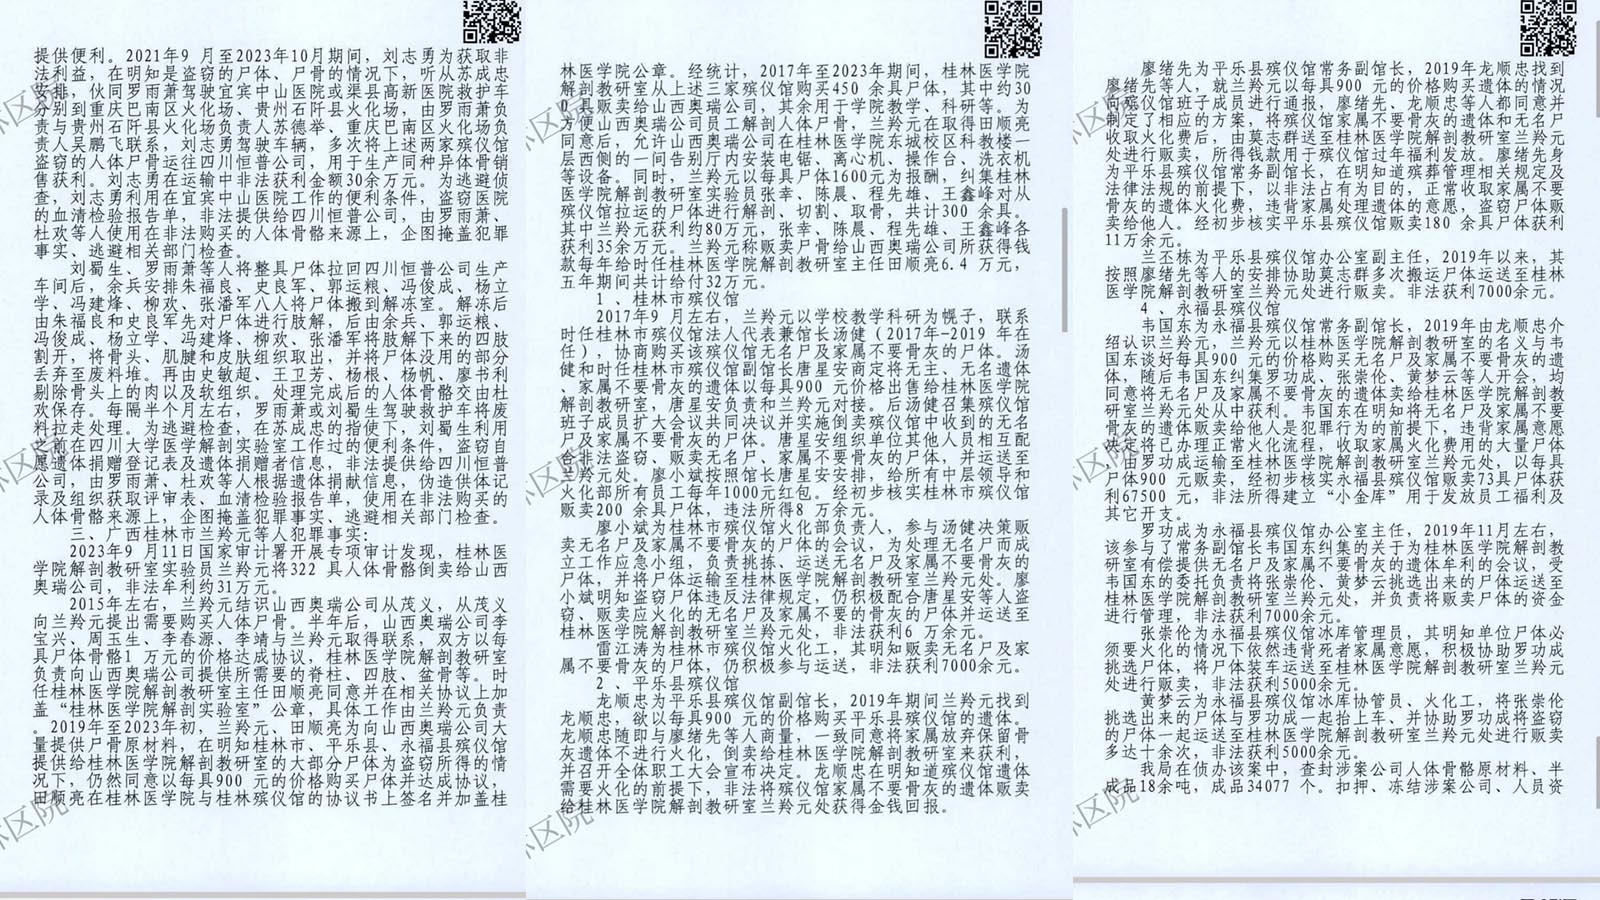 提供便利。2021年9 月至2023年10月期间，刘志勇为获取非
法利益，在明知是盗窃的尸体、尸骨的情况下，听从苏成忠
安排，伙同罗雨萧驾驶宜宾中山医院或渠县高新医院救护车
分别到重庆巴南区火化场、贵州石阡县火化场，由罗雨萧负
责与贵州石阡县火化场负责人苏德举、重庆巴南区火化场负
责人吴鹏飞联系，刘志勇驾驶车辆，多次将上述两家殡仪馆
盗窃的人体尸骨运往四川恒普公司，用于生产同种异体骨销
售获利。刘志勇在运输中非法获利金额30余万元。为逃避侦
查，刘志勇利用在宜宾中山医院工作的便利条件，盗窃医院
的血清检验报告单，非法提供给四川恒普公司，由罗雨萧、
杜欢等人使用在非法购买的人体骨骼来源上，企图掩盖犯罪
事实、逃避相关部门检查。
刘蜀生、罗雨萧等人将整具尸体拉回四川恒普公司生产
车间后，余兵安排朱福良、史良军、郭运粮、冯俊成、杨立
学、冯建烽、柳欢、张潘军八人将尸体搬到解冻室。解冻后
由朱福良和史良军先对尸体进行肢解，后由余兵、郭运粮、
冯俊成、杨立学、冯建烽、柳欢、张潘军将肢解下来的四肢
割开，将骨头、肌腱和皮肤组织取出，并将尸体没用的部分
丢弃至废料堆。再由史敏超、王卫芳、杨根、杨帆、廖书利
剔除骨头上的肉以及软组织。处理完成后的人体骨骼交由杜
欢保存。每隔半个月左右，罗雨萧或刘蜀生驾驶救护车将废
料拉走处理。为逃避检查，在苏成忠的指使下，刘蜀生利用
之前在四川大学医学解剖实验室工作过的便利条件，盗窃自
愿遗体捐赠登记表及遗体捐赠者信息，非法提供给四川恒普
公司，由罗雨萧、杜欢等人根据遗体捐献信息，伪造供体记
录及组织获取评审表、血清检验报告单，使用在非法购买的
人体骨骼来源上，企图掩盖犯罪事实、逃避相关部门检查。
三、广西桂林市兰羚元等人犯罪事实：
2023年9 月11日国家审计署开展专项审计发现，桂林医
学院解剖教研室实验员兰羚元将322 具人体骨骼倒卖给山西
奥瑞公司，非法牟利约31万元。
2015年左右，兰羚元结识山西奥瑞公司从茂义，从茂义
向兰羚元提出需要购买人体尸骨。半年后，山西奥瑞公司李
宝兴、周玉生、李春源、李靖与兰羚元取得联系，双方以每
具尸体骨骼1 万元的价格达成协议，桂林医学院解剖教研室
负责向山西奥瑞公司提供所需要的脊柱、四肢、盆骨等。时
任桂林医学院解剖教研室主任田顺亮同意并在相关协议上加
盖“桂林医学院解剖实验室”公章，具体工作由兰羚元负责
。2019年至2023年初，兰羚元、田顺亮为向山西奥瑞公司大
量提供尸骨原材料，在明知桂林市、平乐县、永福县殡仪馆
提供给桂林医学院解剖教研室的大部分尸体为盗窃所得的情
况下，仍然同意以每具900 元的价格购买尸体并达成协议，
田顺亮在桂林医学院与桂林殡仪馆的协议书上签名并加盖桂
林医学院公章。经统计，2017年至2023年期间，桂林医学院
解剖教研室从上述三家殡仪馆购买450 余具尸体，其中约30
0 具贩卖给山西奥瑞公司，其余用于学院教学、科研等。为
方便山西奥瑞公司员工解剖人体尸骨，兰羚元在取得田顺亮
同意后，允许山西奥瑞公司在桂林医学院东城校区科教楼一
层西侧的一间告别厅内安装电锯、离心机、操作台、洗衣机
等设备。同时，兰羚元以每具尸体1600元为报酬，纠集桂林
医学院解剖教研室实验员张幸、陈晨、程先雄、王鑫峰对从
殡仪馆拉运的尸体进行解剖、切割、取骨，共计300 余具。
其中兰羚元获利约80万元，张幸、陈晨、程先雄、王鑫峰各
获利35余万元。兰羚元称贩卖尸骨给山西奥瑞公司所获得钱
款每年给时任桂林医学院解剖教研室主任田顺亮6.4 万元，
五年期间共计给付32万元。
1 、桂林市殡仪馆
2017年9 月左右，兰羚元以学校教学科研为幌子，联系
时任桂林市殡仪馆法人代表兼馆长汤健（2017年—2019 年在
任），协商购买该殡仪馆无名尸及家属不要骨灰的尸体。汤
健和时任桂林市殡仪馆副馆长唐星安商定将无主、无名遗体
、家属不要骨灰的遗体以每具900 元价格出售给桂林医学院
解剖教研室，唐星安负责和兰羚元对接。后汤健召集殡仪馆
班子成员扩大会议共同决议并实施倒卖殡仪馆中收到的无名
尸及家属不要骨灰的尸体。唐星安组织单位其他人员相互配
合非法盗窃、贩卖无名尸、家属不要骨灰的尸体，并运送至
兰羚元处。廖小斌按照馆长唐星安安排，给所有中层领导和
火化部所有员工每年1000元红包。经初步核实桂林市殡仪馆
贩卖200 余具尸体，违法所得8 万余元。
廖小斌为桂林市殡仪馆火化部负责人，参与汤健决策贩
卖无名尸及家属不要骨灰的尸体的会议，为处理无名尸而成
立工作应急小组，负责挑拣、运送无名尸及家属不要骨灰的
尸体，并将尸体运输至桂林医学院解剖教研室兰羚元处。廖
小斌明知盗窃尸体违反法律规定，仍积极配合唐星安等人盗
窃、贩卖应火化的无名尸及家属不要的骨灰的尸体并运送至
桂林医学院解剖教研室兰羚元处，非法获利6 万余元。
雷江涛为桂林市殡仪馆火化工，其明知贩卖无名尸及家
属不要骨灰的尸体，仍积极参与运送，非法获利7000余元。
2 、平乐县殡仪馆
龙顺忠为平乐县殡仪馆副馆长，2019年期间兰羚元找到
龙顺忠，欲以每具900 元的价格购买平乐县殡仪馆的遗体。
龙顺忠随即与廖绪先等人商量，一致同意将家属放弃保留骨
灰遗体不进行火化，倒卖给桂林医学院解剖教研室来获利，
并召开全体职工大会宣布决定。龙顺忠在明知道殡仪馆遗体
需要火化的前提下，非法将殡仪馆家属不要骨灰的遗体贩卖
给桂林医学院解剖教研室兰羚元处获得金钱回报。
廖绪先为平乐县殡仪馆常务副馆长，2019年龙顺忠找到
廖绪先等人，就兰羚元以每具900 元的价格购买遗体的情况
向殡仪馆班子成员进行通报，廖绪先、龙顺忠等人都同意并
制定了相应的方案，将殡仪馆家属不要骨灰的遗体和无名尸
收取火化费后，由莫志群送至桂林医学院解剖教研室兰羚元
处进行贩卖，所得钱款用于殡仪馆过年福利发放。廖绪先身
为平乐县殡仪馆常务副馆长，在明知道殡葬管理相关规定及
法律法规的前提下，以非法占有为目的，正常收取家属不要
骨灰的遗体火化费，违背家属处理遗体的意愿，盗窃尸体贩
卖给他人。经初步核实平乐县殡仪馆贩卖180 余具尸体获利
11万余元。
兰丕栋为平乐县殡仪馆办公室副主任，2019年以来，其
按照廖绪先等人的安排协助莫志群多次搬运尸体运送至桂林
医学院解剖教研室兰羚元处进行贩卖。非法获利7000余元。
4 、永福县殡仪馆
韦国东为永福县殡仪馆常务副馆长，2019年由龙顺忠介
绍认识兰羚元，兰羚元以桂林医学院解剖教研室的名义与韦
国东谈好每具900 元的价格购买无名尸及家属不要骨灰的遗
体，随后韦国东纠集罗功成、张崇伦、黄梦云等人开会，均
同意将无名尸及家属不要骨灰的遗体卖给桂林医学院解剖教
研室兰羚元处从中获利。韦国东在明知将无名尸及家属不要
骨灰的遗体贩卖给他人是犯罪行为的前提下，违背家属意愿
决定将已办理正常火化流程，收取家属火化费用的大量尸体
，由罗功成运输至桂林医学院解剖教研室兰羚元处，以每具
尸体900 元贩卖，经初步核实永福县殡仪馆贩卖73具尸体获
利67500 元，非法所得建立“小金库”用于发放员工福利及
其它开支。
罗功成为永福县殡仪馆办公室主任，2019年11月左右，
该参与了常务副馆长韦国东纠集的关于为桂林医学院解剖教
研室有偿提供无名尸及家属不要骨灰的遗体牟利的会议，受
韦国东的委托负责将张崇伦、黄梦云挑选出来的尸体运送至
桂林医学院解剖教研室兰羚元处，并负责将贩卖尸体的资金
进行管理，非法获利7000余元。
张崇伦为永福县殡仪馆冰库管理员，其明知单位尸体必
须要火化的情况下依然违背死者家属意愿，积极协助罗功成
挑选尸体，将尸体装车运送至桂林医学院解剖教研室兰羚元
处进行贩卖，非法获利5000余元。
黄梦云为永福县殡仪馆冰库协管员、火化工，将张崇伦
挑选出来的尸体与罗功成一起抬上车、并协助罗功成将盗窃
的尸体一起运送至桂林医学院解剖教研室兰羚元处进行贩卖
多达十余次，非法获利5000余元。
我局在侦办该案中，查封涉案公司人体骨骼原材料、半
成品18余吨，成品34077 个。扣押、冻结涉案公司、人员资